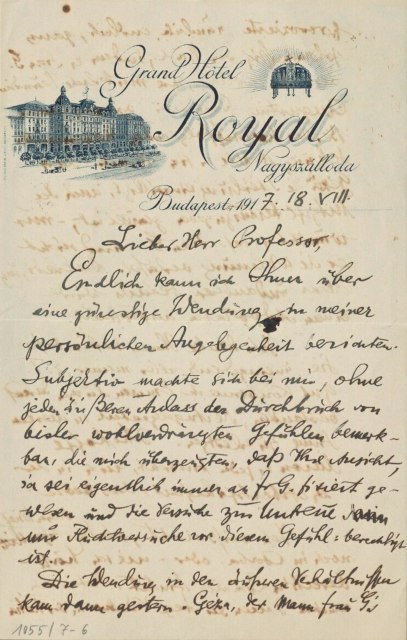 Grand Hôtel
Royal
Nagyszálloda
Budapest, 1917. 18. VIII.
Lieber Herr Professor,
Endlich kann ich Ihnen über
eine günstige Wendung in meiner
persönlichen Angelegenheit berichten.
Subjektiv machte sich bei mir, ohne
jeden äußeren Anlass der Durchbruch von
bisher wohlverdrängten Gefühlen bemerk-
bar, die mich überzeugten, daß Ihre Ansicht,
ich sei eigentlich immer an Fr G. fixiert ge-
wesen und die Versuche zur Untreue
nur Fluchtversuche vor diesem Gefühl, berechtigt
ist.
Die Wendung in den äußeren Verhältnissen
kam dann gestern. Géza, der Mann Frau G.'s
1055/7-6